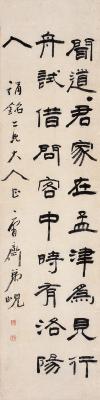 聞道君家在孟津為見行
舟試借問客中時有洛陽
人
銘二兄大人正 庸齋弟峴